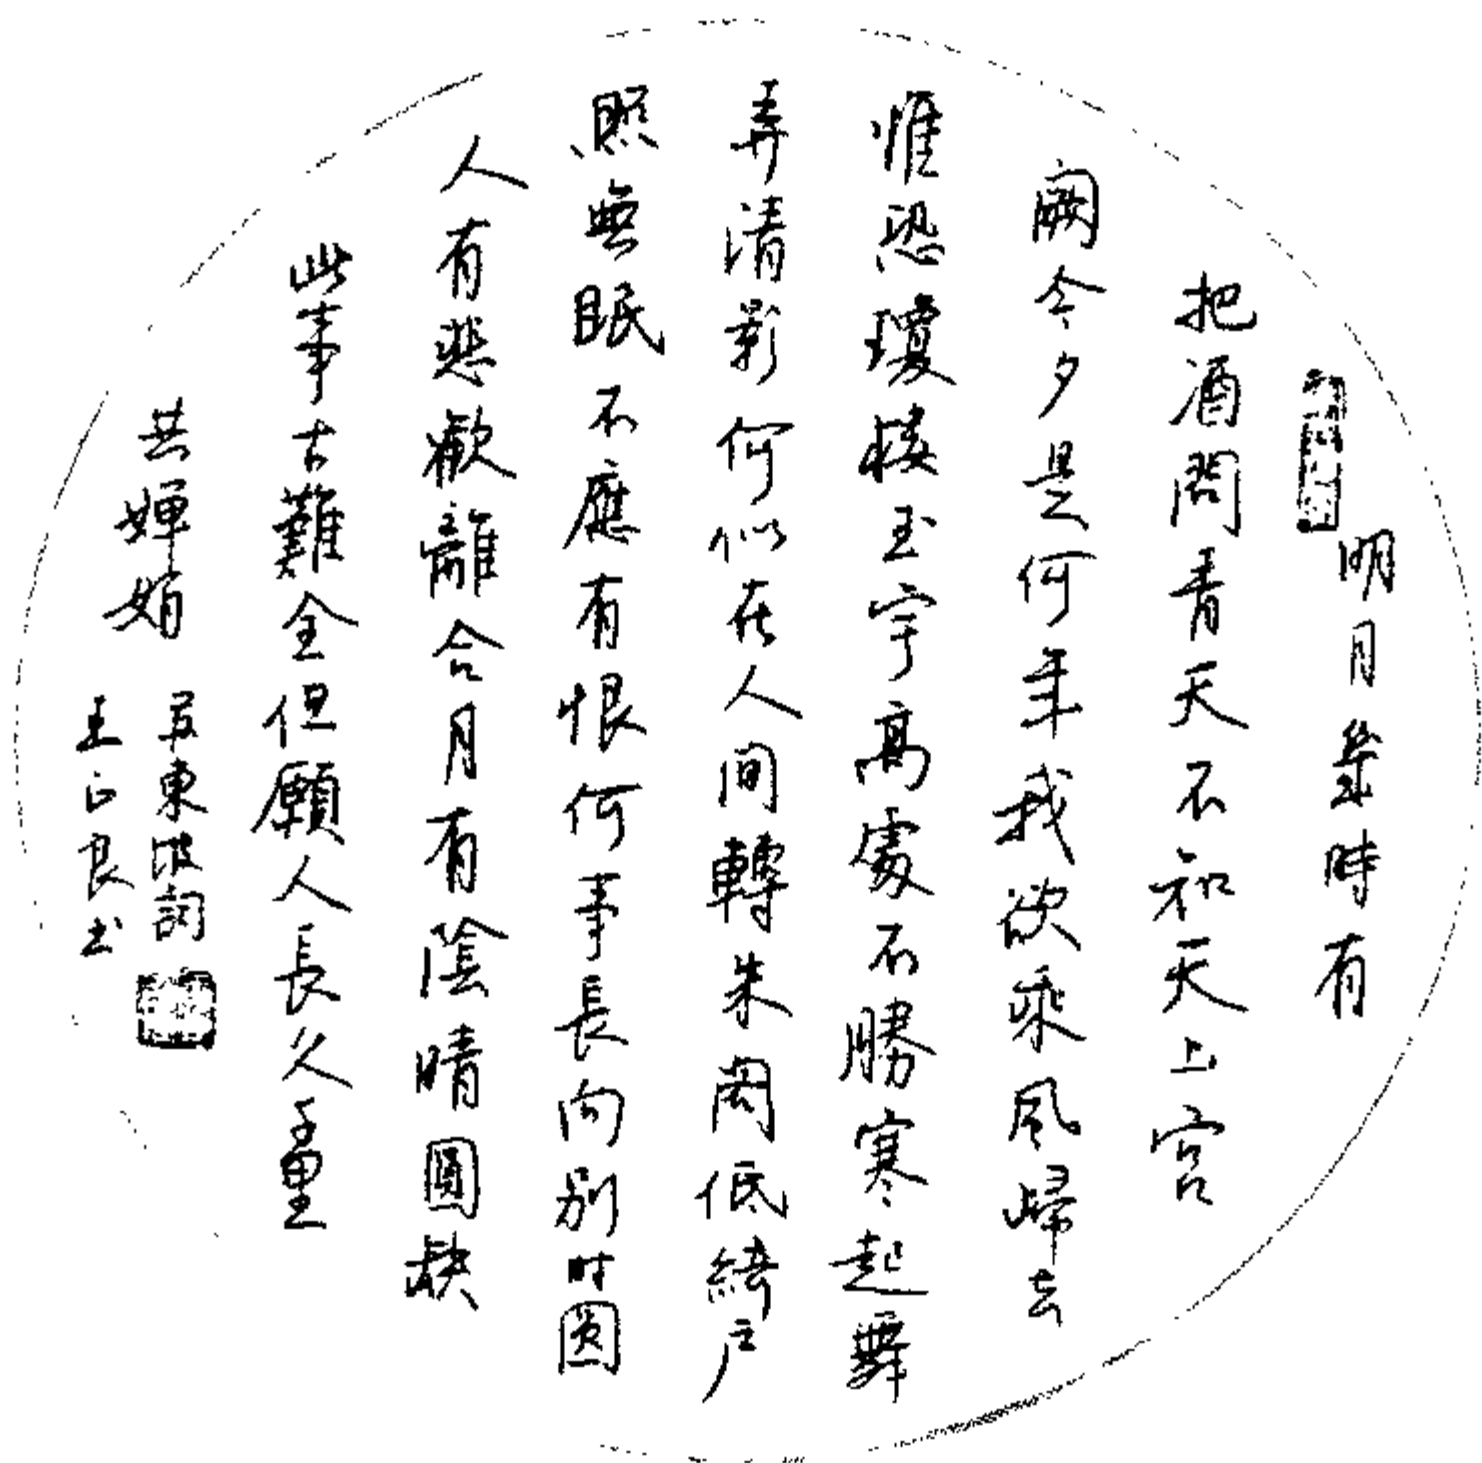 明月幾時有
把酒問青天不知天上宮
闕今夕是何年我欲乘風歸去
惟恐瓊樓玉宇高處不勝寒起舞
弄清影何似在人間轉朱閣低綺戶
照無眠不應有恨何事長向別时圓
人有悲歡離合月有陰晴圓缺
此事古難全但願人長久千里
共嬋娟
東坡詞
王正良书